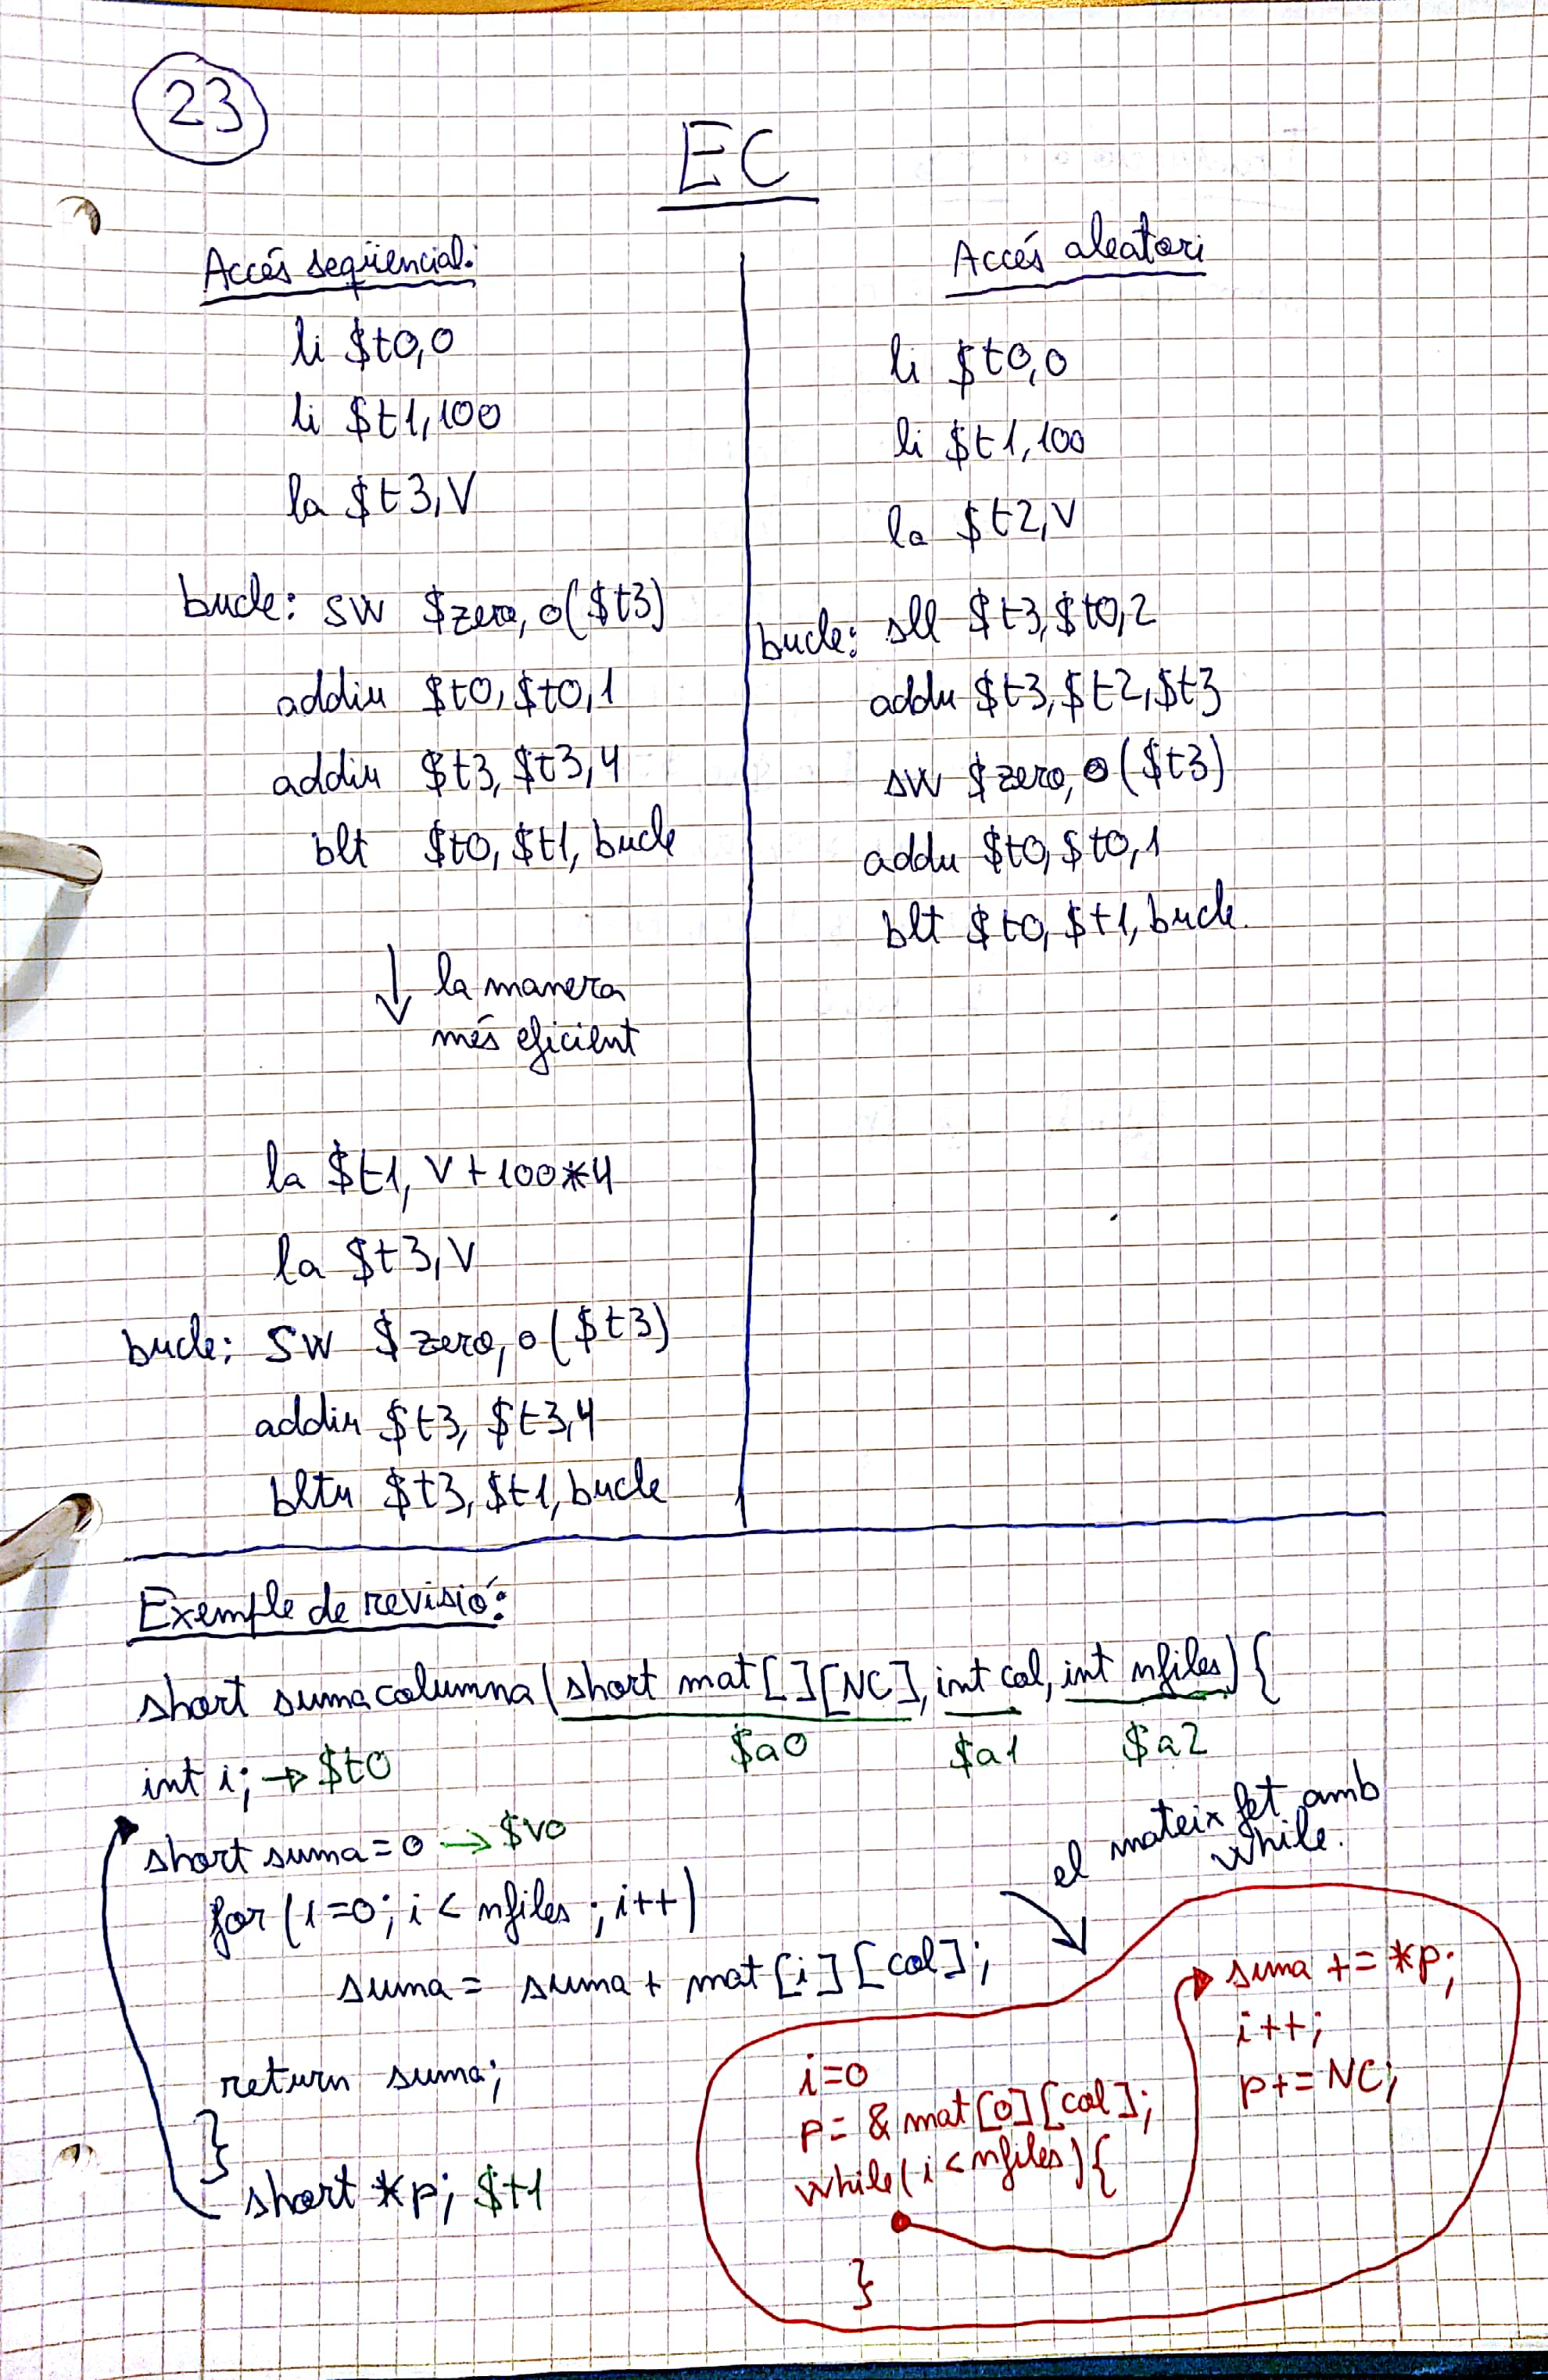 23
EC
Accés seqüencial:
li $t0,0
li $t1,100
la $t3,V
bucle: sw $zero, 0($t3)
addiu $t0, $t0,1
addiu $t3, $t3,4
blt $t0, $t1, bucle
↓ la manera
més eficient
la $t1, V+100*4
la $t3,V
bucle: sw $zero, 0($t3)
addiu $t3, $t3,4
bltu $t3, $t1, bucle
Accés aleatori
li $t0,0
li $t1,100
la $t2,V
bucle: sll $t3,$t0,2
addu $t3,$t2,$t3
sw $zero, 0($t3)
addu $t0,$t0,1
blt $t0,$t1,bucle.
Exemple de revisió:
short sumacolumna(short mat[][NC], int col, int nfiles){
$a0 $a1 $a2
int i; → $t0
short suma=0 → $v0
for(i=0; i< nfiles ; i++)
suma = suma + mat[i][col];
return suma;
}
short *p; $t1
el mateix fet amb
while.
i=0
p= & mat[0][col];
while(i<nfiles){
suma += *p;
i++;
p+= NC;
}